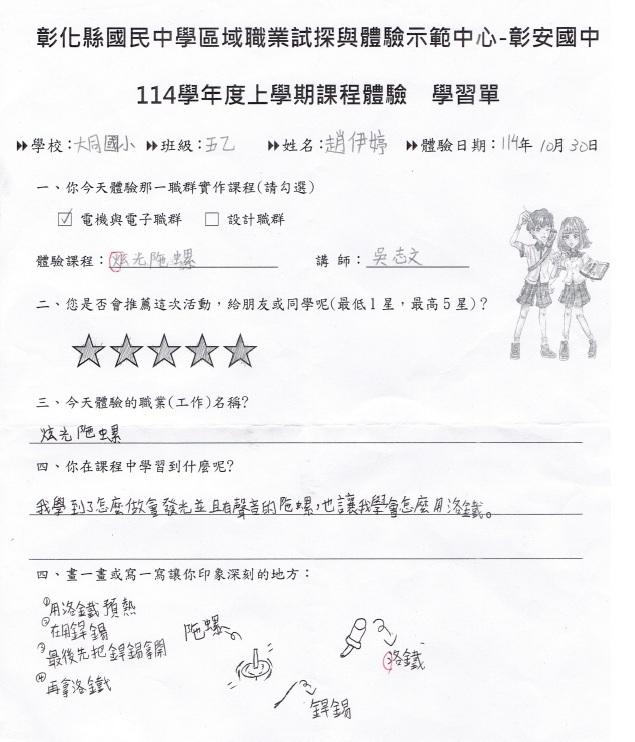 彰化縣國民中學區域職業試探與體驗示範中心-彰安國中
114學年度上學期課程體驗 學習單
學校：大同國小 班級：五乙 姓名：趙伊婷 體驗日期：114年10月30日
一、你今天體驗那一職群實作課程(請勾選)
☑ 電機與電子職群 □ 設計職群
體驗課程：炫光陀螺 講師：吳志文
二、您是否會推薦這次活動，給朋友或同學呢(最低1星，最高5星)？
三、今天體驗的職業(工作)名稱?
炫光陀螺
四、你在課程中學習到什麼呢?
我學到了怎麼做會發光並且有聲音的陀螺，也讓我學會怎麼用洛鐵。
四、畫一畫或寫一寫讓你印象深刻的地方：
①用洛鐵預熱
②在用銲錫
③最後先把銲錫拿開
④再拿洛鐵
陀螺
洛鐵
銲錫